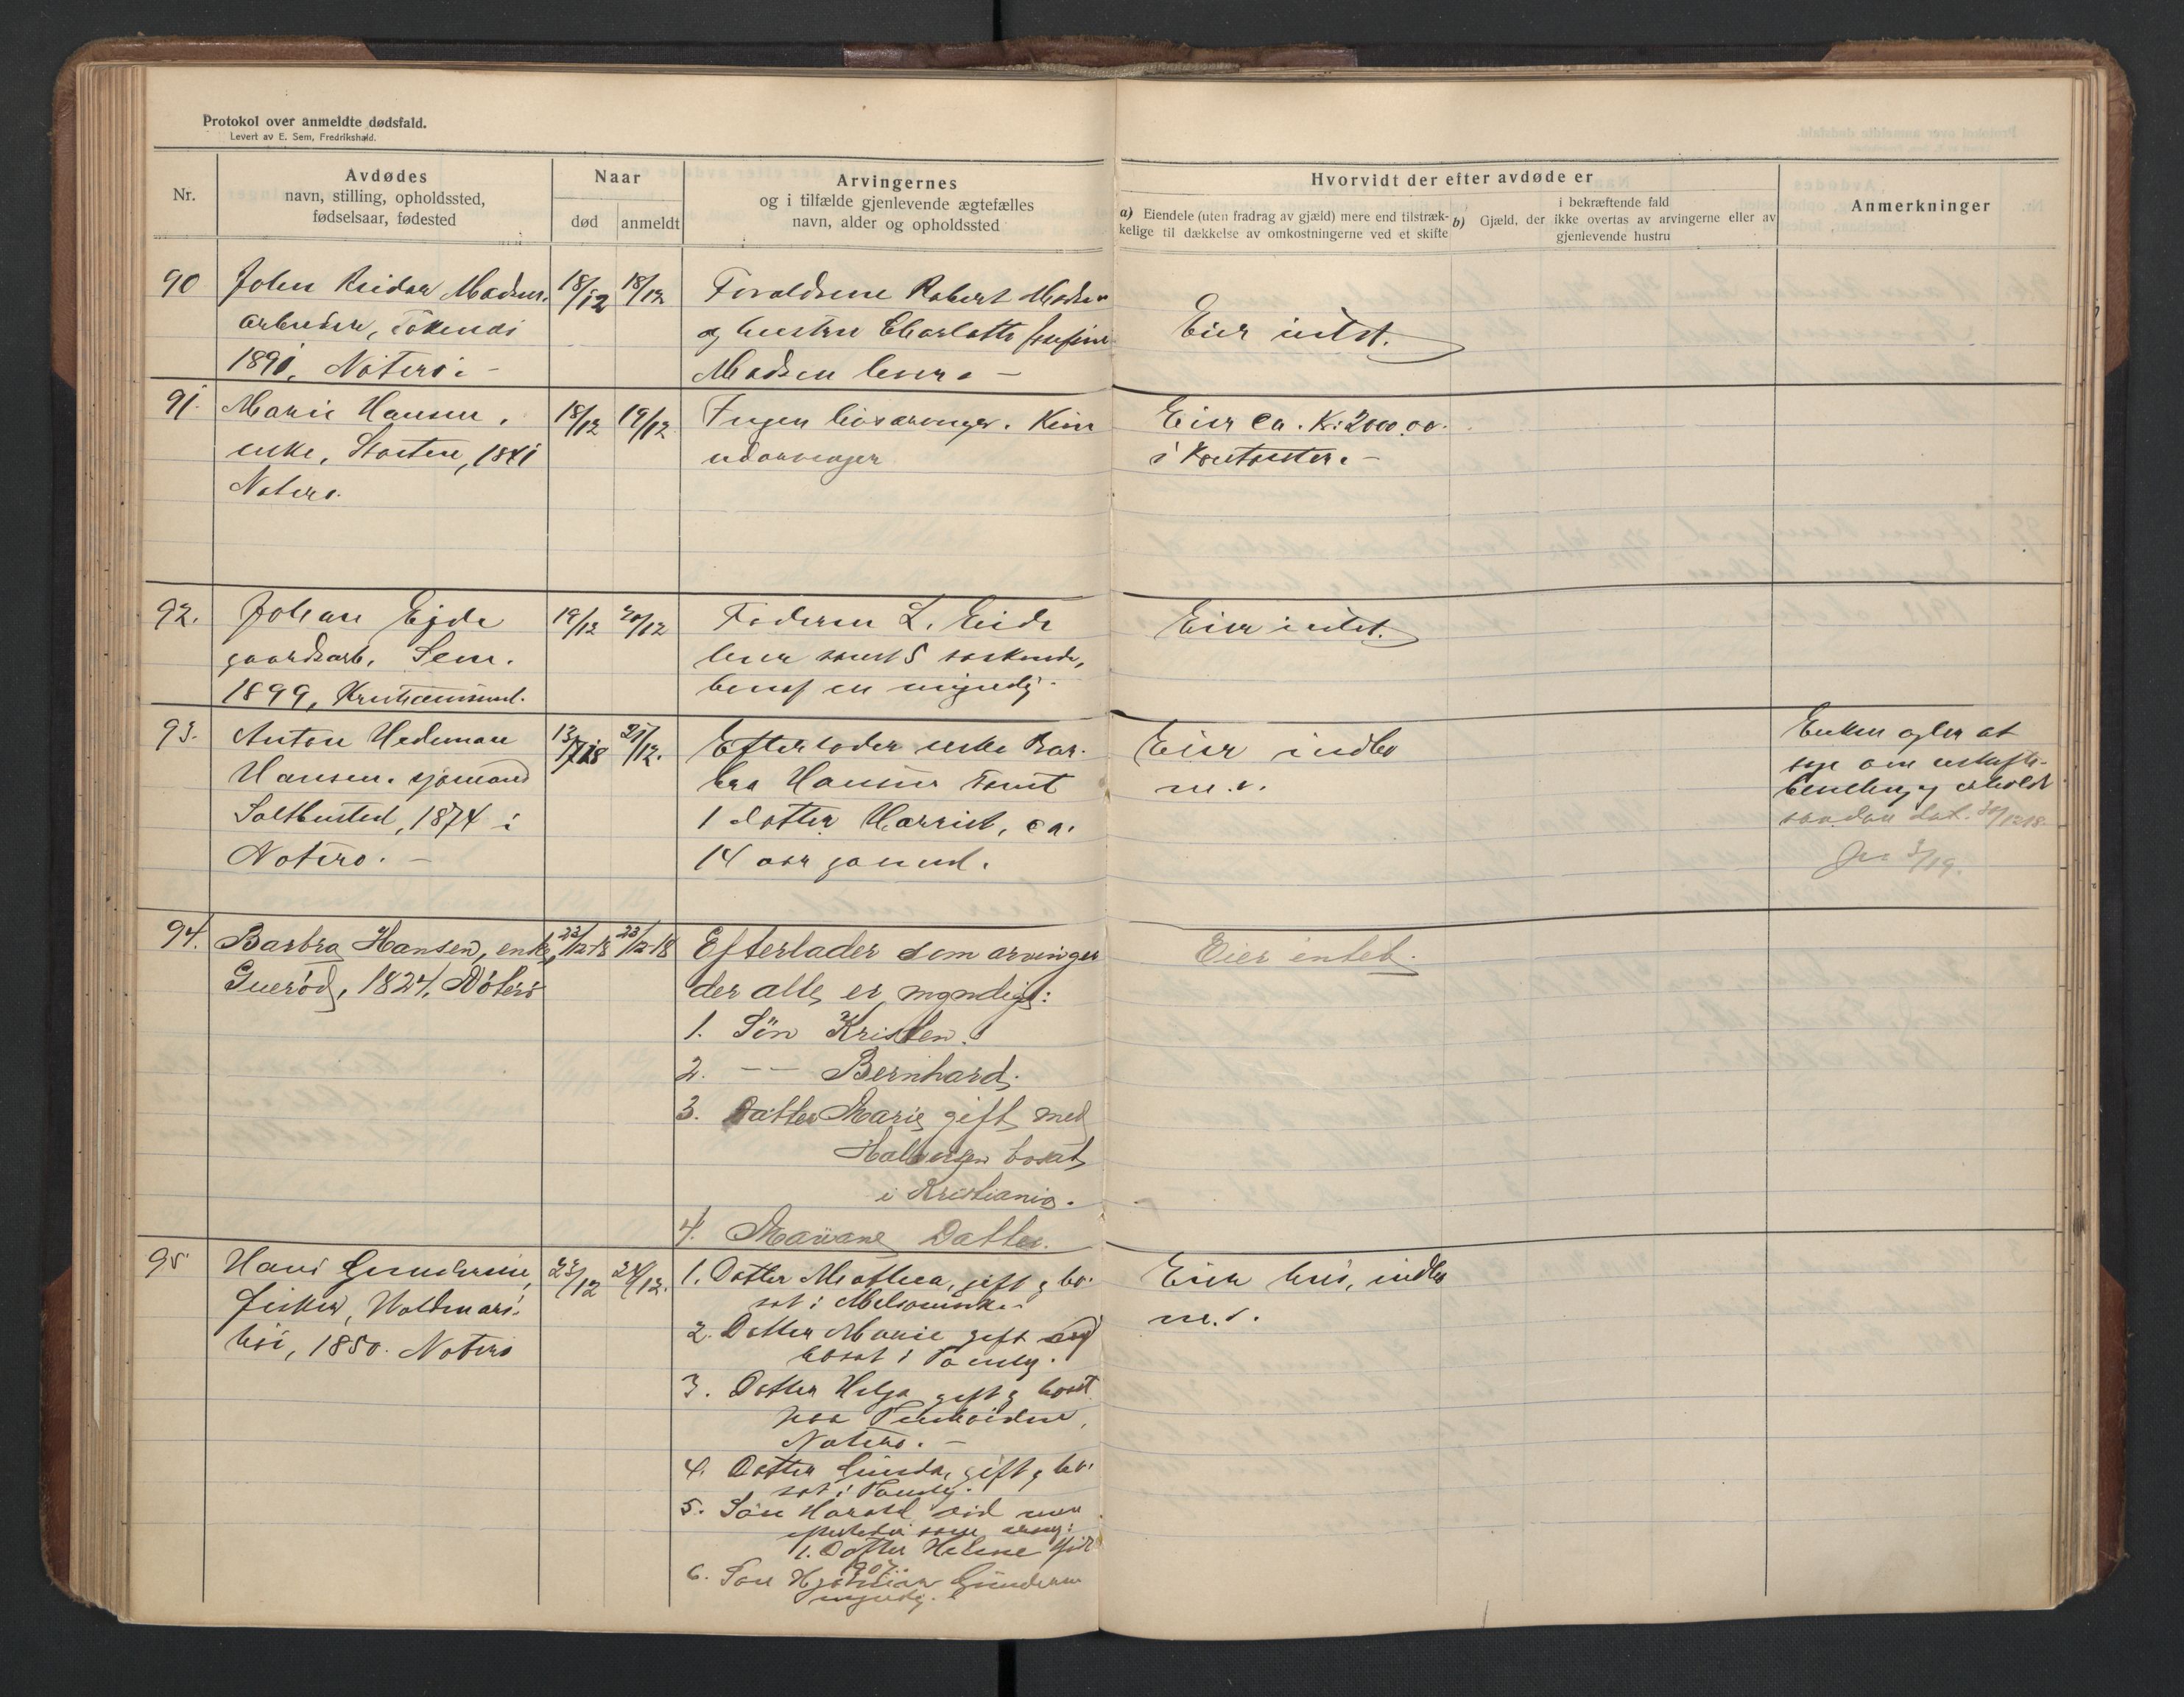 Protokol over anmeldte dødsfald.
Levert av E. Sem, Fredrikshald.
Nr.
Avdødes
navn, stilling, opholdssted,
fødselsaar, fødested
Naar
død
anmeldt
Arvingernes
og i tilfælde gjenlevende ægtefælles
navn, alder og opholdssted
Hvorvidt der efter avdøde er
a) Eiendele (uten fradrag av gjæld) mere end tilstræk-
kelige til dækkelse av omkostningerne ved et skifte
i bekræftende fald
b) Gjæld, der ikke overtas av arvingerne eller av
gjenlevende hustru
Anmerkninger
90
John Reidar Madsen
arbeider,
1890, Nøterø.
18/12
18/12
Foreldrene Robert Madsen
og hustru Charlotte
Madsen lever.
Eier intet.
91.
Marie Hansen,
enke, 1841
Nøterø.
18/12
19/12
Ingen livsarvinger. Kun
utarvinger
Eier ca. Kr. 2000.00.
i
92.
Johan Ejde
gaardsarb. Sem.
1899, Kristiansund.
19/12
20/12
Faderen L. Eide
lever samt 5 søskende,
herav en umyndig.
Eier intet.
93.
Anton Hedeman
Hansen. sjømand
1874 i
Nøterø.
13/7 18
21/12.
Efterlader enke Bar-
bra Hansen samt
1 datter Harriet, ca.
14 aar gammel.
Eier indbo
m.v.
Enken agter at
søge om uskifte-
bevilling og erholdt
saadan dat. 30/12 18.
94.
Barbra Hansen, enke,
1824, Nøterø
23/12-18
23/12-18
Efterlader som arvinger
der alle er myndige:
1. Søn Kristen.
2. -- Bernhard.
3. Datter Marie gift med
Halvorsen bosat
i Kristiania.
4. Mariane Datter.
Eier intet.
95
Hans Gundersen,
fisker,
1850. Nøterø
23/12
24/12.
1. Datter Mathea, gift og bo-
sat i Melsomvik.
2. Datter Marie gift og
bosat i
3. Datter Helga gift og bosat
paa
Nøterø.
4. Datter Gunda, gift og bo-
sat i
5. Søn Harald død men
efterlater som arving:
1. Datter Helene født
1907.
6. Søn Hjalmar Gundersen
myndig.
Eier hus, indbo
m.v.